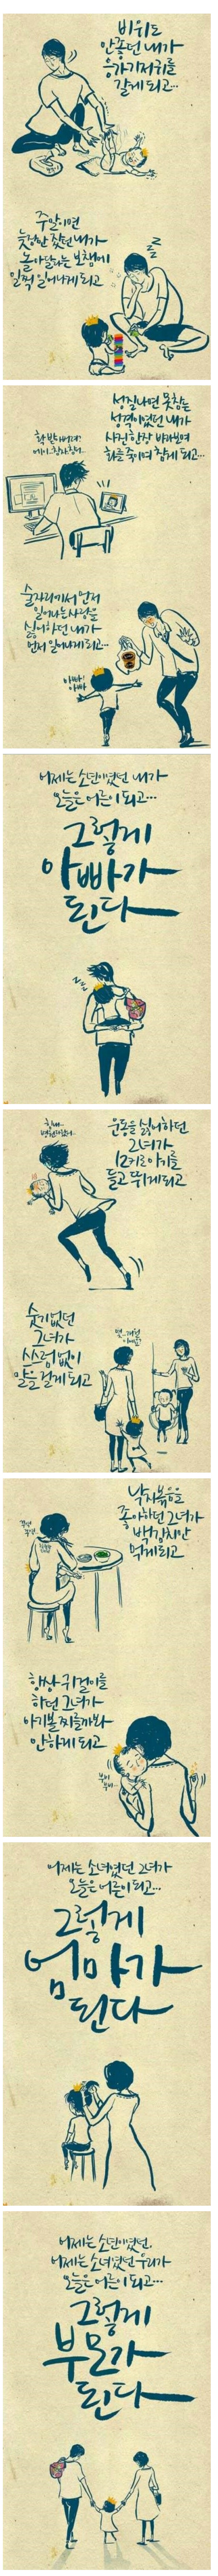 비위도
안좋던 내가
응가기저귀를
갈게 되고...
주말이면
늦잠만 잤던 내가
놀아달라는 보챔에
일찍 일어나게 되고
성질나면 못참는
성격이었던 내가
사진 한장 바라보며
화를 죽이며 참게 되고...
술자리에서 먼저
일어나는 사람을
싫어하던 내가
먼저 일어나게 되고...
아빠!
아빠
어제는 소년이었던 내가
오늘은 어른이 되고...
그렇게
아빠가
된다
운동을 싫어하던
그녀가
12키로 아기를
들고 뛰게 되고
숫기없던
그녀가
쓰스럼 없이
말을 걸게 되고
낙지볶음을
좋아하던 그녀가
백김치만
먹게 되고
항상 귀걸이를
하던 그녀가
아기볼 찌를까봐
안하게 되고
어제는 소녀였던 그녀가
오늘은 어른이 되고...
그렇게
엄마가
된다
어제는 소년이었던,
어제는 소녀였던 우리가
오늘은 어른이 되고...
그렇게
부모가
된다